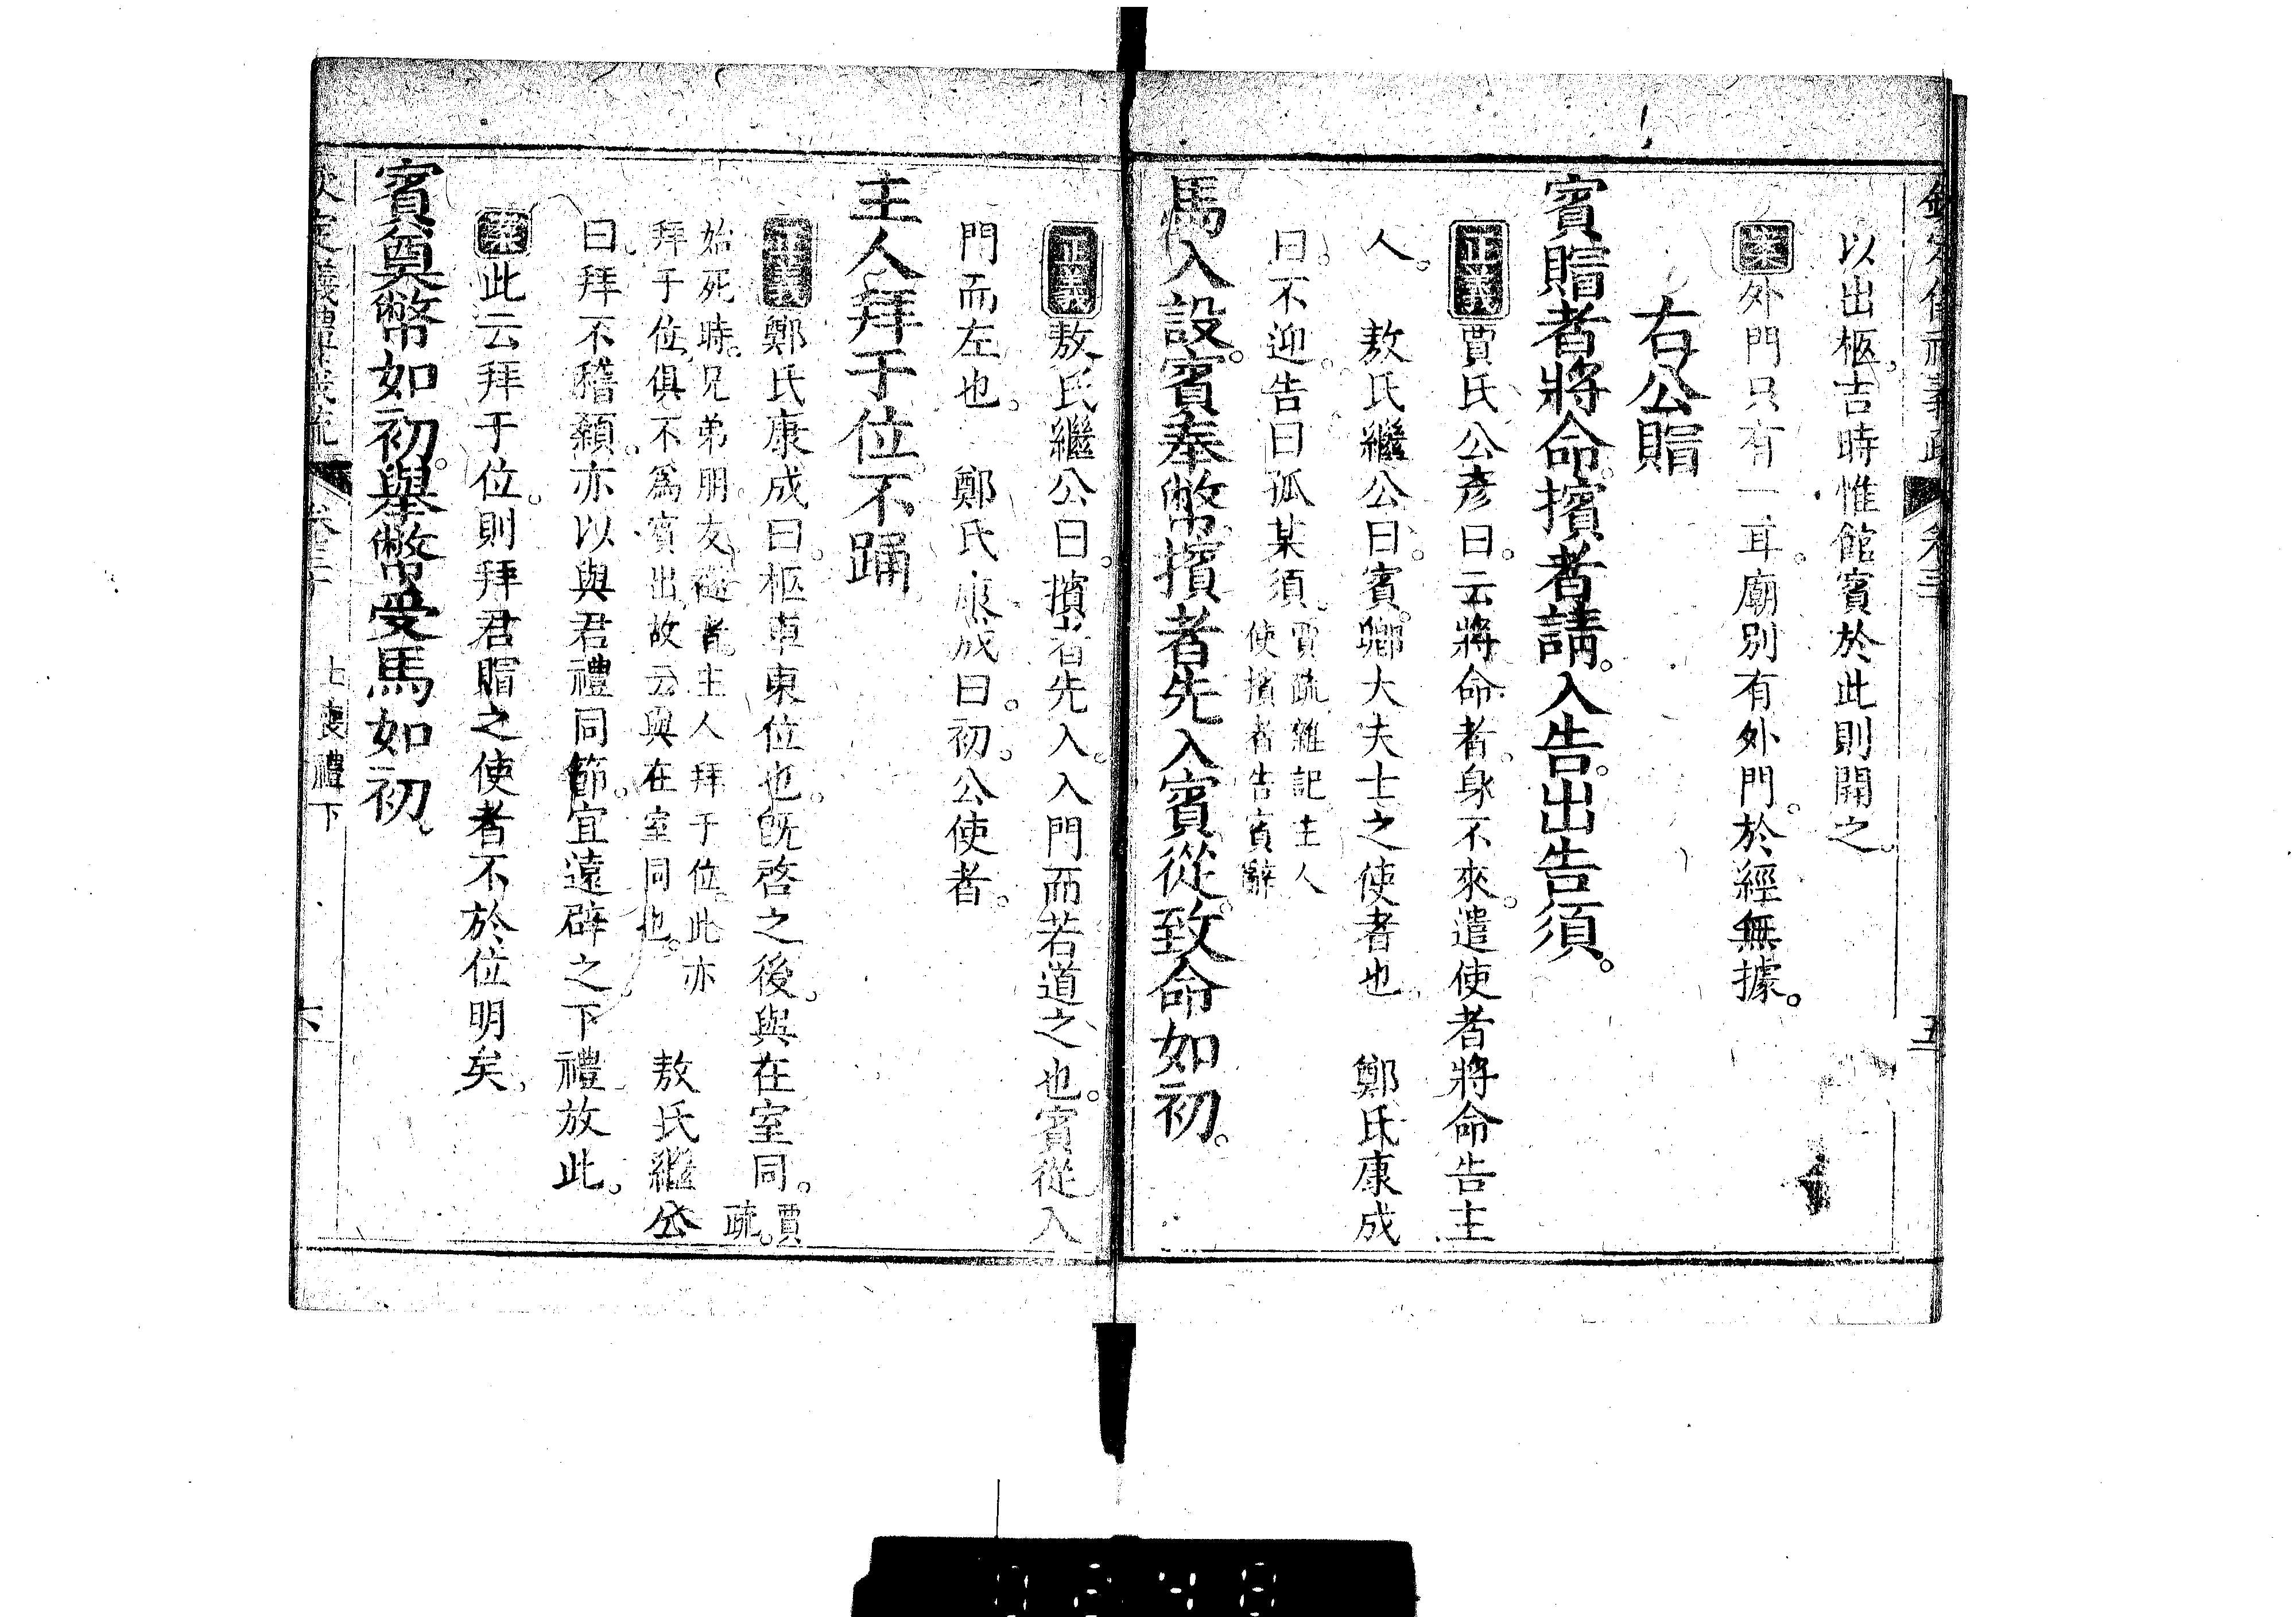 以出柩。吉時惟館賓於此則開之。
案外門只有一耳。廟別有外門。於經無據。
右公賵
賓賵者將命。擯者請。入告。出告須。
正義賈氏公彥曰。云將命者。身不來。遣使者將命告主
人。　敖氏繼公曰。賓。卿大夫士之使者也。　鄭氏康成
曰。不迎。告曰孤某須。賈疏雜記主人
使擯者告賓辭
馬入設。賓奉幣。擯者先入。賓從。致命如初。
正義敖氏繼公曰。擯者先入。入門而若道之也。賓從入
門而左也。　鄭氏康成曰。初。公使者。
主人拜于位。不踊
正義鄭氏康成曰。柩車東位也。旣啓之後。與在室同。賈
疏。
始死時。兄弟朋友襚者。主人拜于位。此亦
拜于位。俱不爲賓出。故云與在室同也。　敖氏繼公
曰。拜不稽顙。亦以與君禮同節。宜遠辟之。下禮放此。
案此云拜于位。則拜君賵之使者不於位明矣。
賓奠幣如初。舉幣受馬如初。
欽定儀禮義疏　卷三十　士喪禮下　六